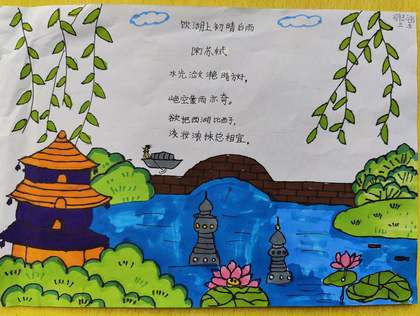 饮湖上初晴后雨
苏轼
水光潋滟晴方好,
山色空蒙雨亦奇。
欲把西湖比西子,
淡妆浓抹总相宜。